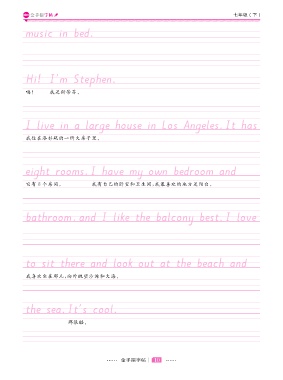 七年级(下)
music in bed.
Hi! I'm Stephen.
嗨! 我是斯蒂芬。
I live in a large house in Los Angeles. It has
我住在洛杉矶的一所大房子里。
eight rooms. I have my own bedroom and
它有8个房间。 我有自己的卧室和卫生间,我最喜欢的地方是阳台。
bathroom, and I like the balcony best. I love
to sit there and look out at the beach and
我喜欢坐在那儿,向外眺望沙滩和大海。
the sea. It's cool.
那很酷。